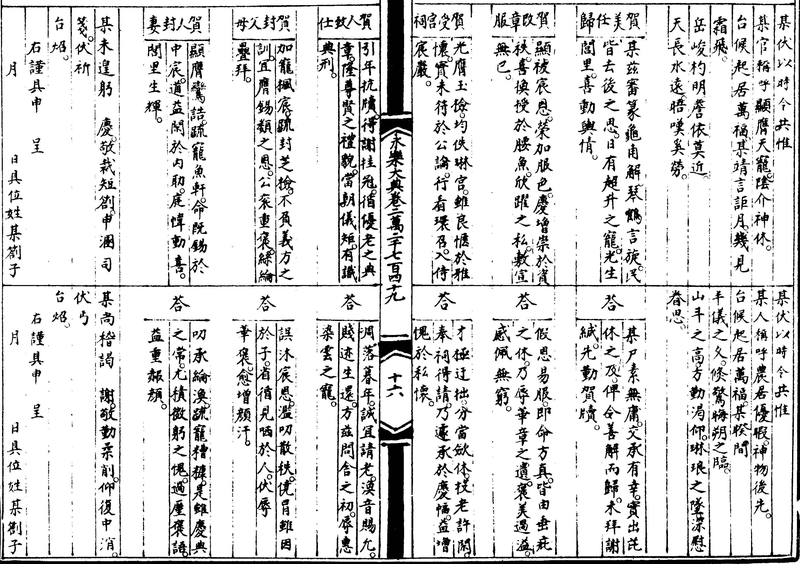 某伏以時令共惟
某官稱呼顯膺天寵陰介神休
台候起居萬福某靖言詎月幾見
霜飛
岳峻杓明詹依莫近
天長水遠晤嘆奚勞
賀美任歸
某茲審篆龜甫解琴鶴言旋民
皆去後之思日有超升之寵光生
閭里喜動輿情
賀改章服
顯被宸恩榮加服色慶增崇於資
秩喜換授於腰魚欣躍之私敷宣
無已
賀受宮祠
光膺玉檢均佚琳宮雖良愜於雅
懷實未符於公論佇看環召入侍
宸嚴
某伏以時令共惟
某人稱呼農君優暇神物後先
台候起居萬福某睽間
丰儀之久倏驚晦朔之臨
山斗之高方勤渴仰琳琅之墜深慰
眷思
荅
某尸素無庸交承有幸實出芘
休之及俾令善解而歸未拜謝
緘先勤賀牘
荅
假恩易服即命方真皆由垂庇
之休乃辱華章之遺褒美過溢
感佩無窮
荅
才極迂拙分當斂休投老許閑
奉祠得請乃蒙承於慶幅益增
愧於私懷
永樂大典卷二萬二千七百四十九
十六
賀人致仕
引年抗牘得謝挂冠循優老之典
章隆尊賢之禮貌當朝儀矩有識
典刑
賀封父母
加寵楓宸疏封芝檢不負義方之
訓宜膺錫類之恩公袞重褒綵綸
疊拜
賀人封妻
顯膺鸞誥疏寵魚軒命既錫於
中宸道益閑於內助庭幃動喜
閭里生輝
某未遑躬 慶敬裁短劄申溷司
箋伏祈
台炤
右謹具申 呈
月 日具位姓某劄子
荅
凋落暮年誠宜請老渙音賜允
賤迹生還方茲問舍之初辱惠
染雲之寵
荅
誤沐宸恩濫叨散秩僥冒雖因
於子省循見哂於人伏辱
華褒愈增顏汗
荅
叨承綸渙疏寵糟糠是雖慶典
之常尤積微躬之愧過厪褒語
益重赧顏
某尚稽謁 謝敬勤柔削仰復中涓
伏丐
台炤
右謹具申 呈
月 日具位姓某劄子